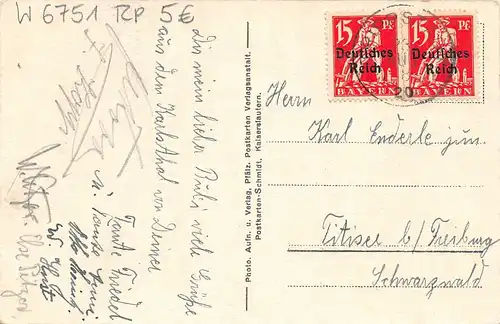 W 6751 RP 5€
Dir mein lieber Bubi viele Grüße
aus dem Karlsthal von Deiner
Tante Friedel
u. Tante Anni
Otto
W. Horst
W. Pitzer. Else Pitzer.
Photo. Aufn. u. Verlag, Pfälz. Postkarten Verlagsanstalt.
Postkarten-Schmidt, Kaiserslautern.
15 Pf. 15 Pf.
Deutsches Deutsches
Reich Reich
BAYERN BAYERN
20
Herrn
Karl Enderle jun.
Titisee b/Freiburg
Schwarzwald